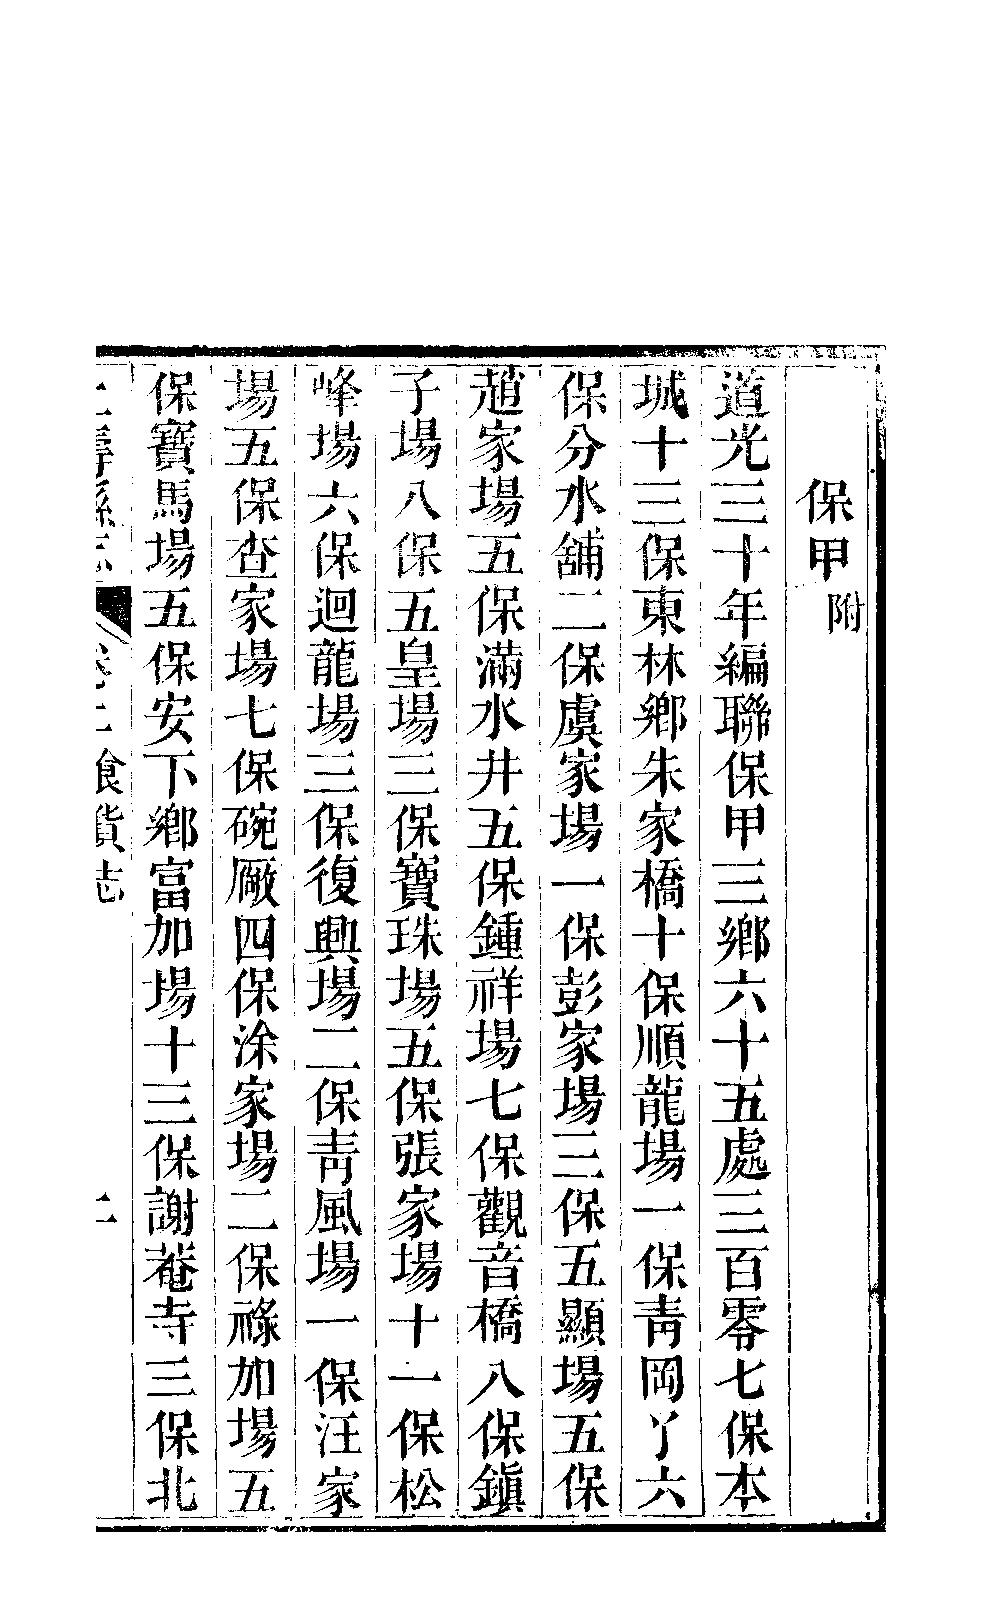 保甲附
道光三十年編聯保甲三鄉六十五處三百零七保本
城十三保東林鄉朱家橋十保順龍場一保靑岡丫六
保分水舖二保虞家場一保彭家場三保五顯場五保
趙家場五保滿水井五保鍾祥場七保觀音橋八保鎭
子場八保五皇場三保寶珠場五保張家場十一保松
峰場六保迴龍場三保復興場二保靑風場一保汪家
場五保查家場七保碗厰四保涂家場二保祿加場五
保寶馬場五保安下鄉富加場十三保謝菴寺三保北
壽縣志 卷二食貨志